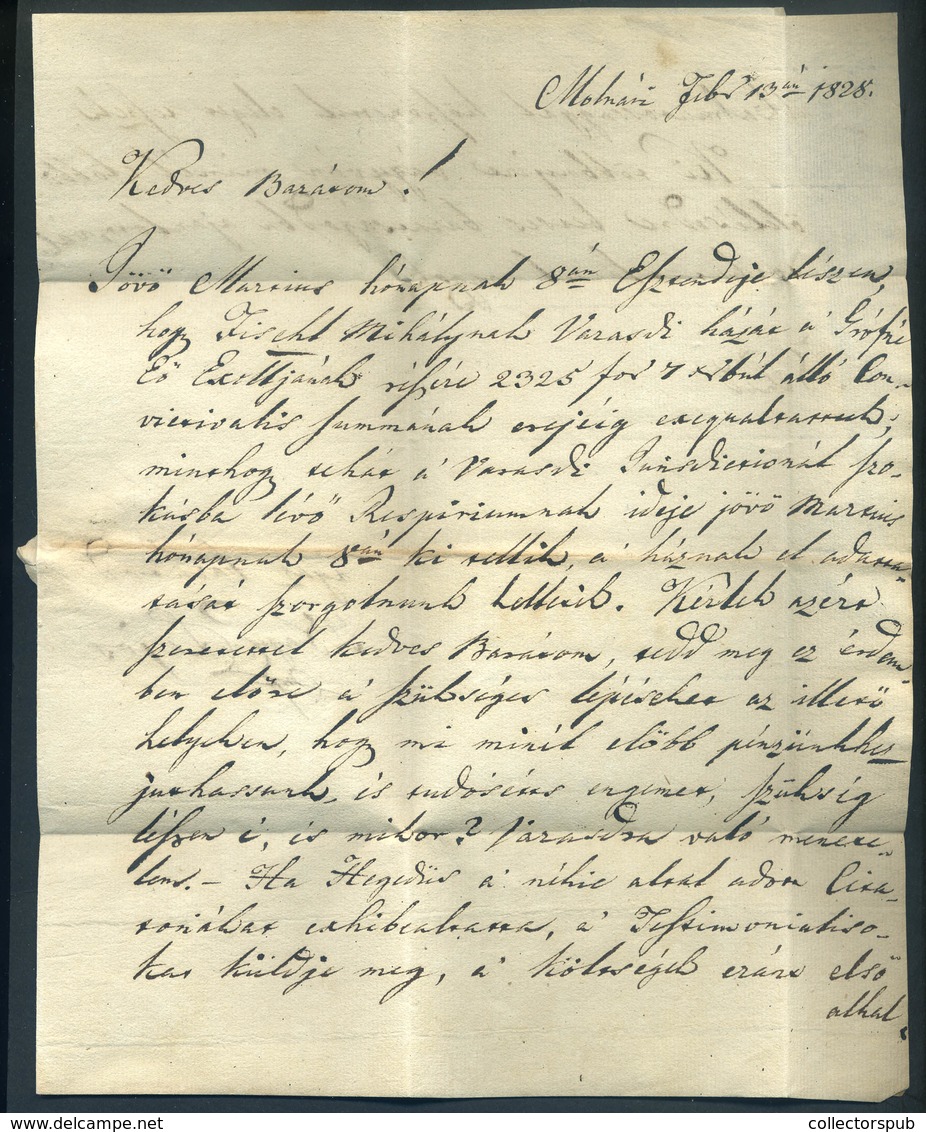 Molnári Febr 13án 1828.
Kedves Barátom!
Jövő Martius hónapnak 8án Esztendeje lészen,
hogy Fischl Mihálynak Varasdi házát a' Grófné
Eő Excttjának részére 2325 for 7 xrbúl álló Con-
victivalis summának erejéig exequáltattuk;
minthogy tehát a' Varasdi Jurisdictionál szo-
kásba lévő Respiriumnak ideje jövő Martius
hónapnak 8án ki tellik, a' háznak el adatta-
tását szorgolnunk kelletik. Kérlek azért
szeretettel kedves Barátom, tedd meg ez érdem-
ben előre a' szükséges lépéseket az illető
helyeken, hogy mi minél előbb pénzünkhez
juthassunk, és tudósíts engemet, szükség
lészen é, és mikor? Varasdra való menete-
lem. - Ha Hegedüs a' néhie által adott Cita-
toriákat exhibeáltatta, a' Testimonialiso-
kat küldje meg, a' költségek eránt első
alkal
collectorspub